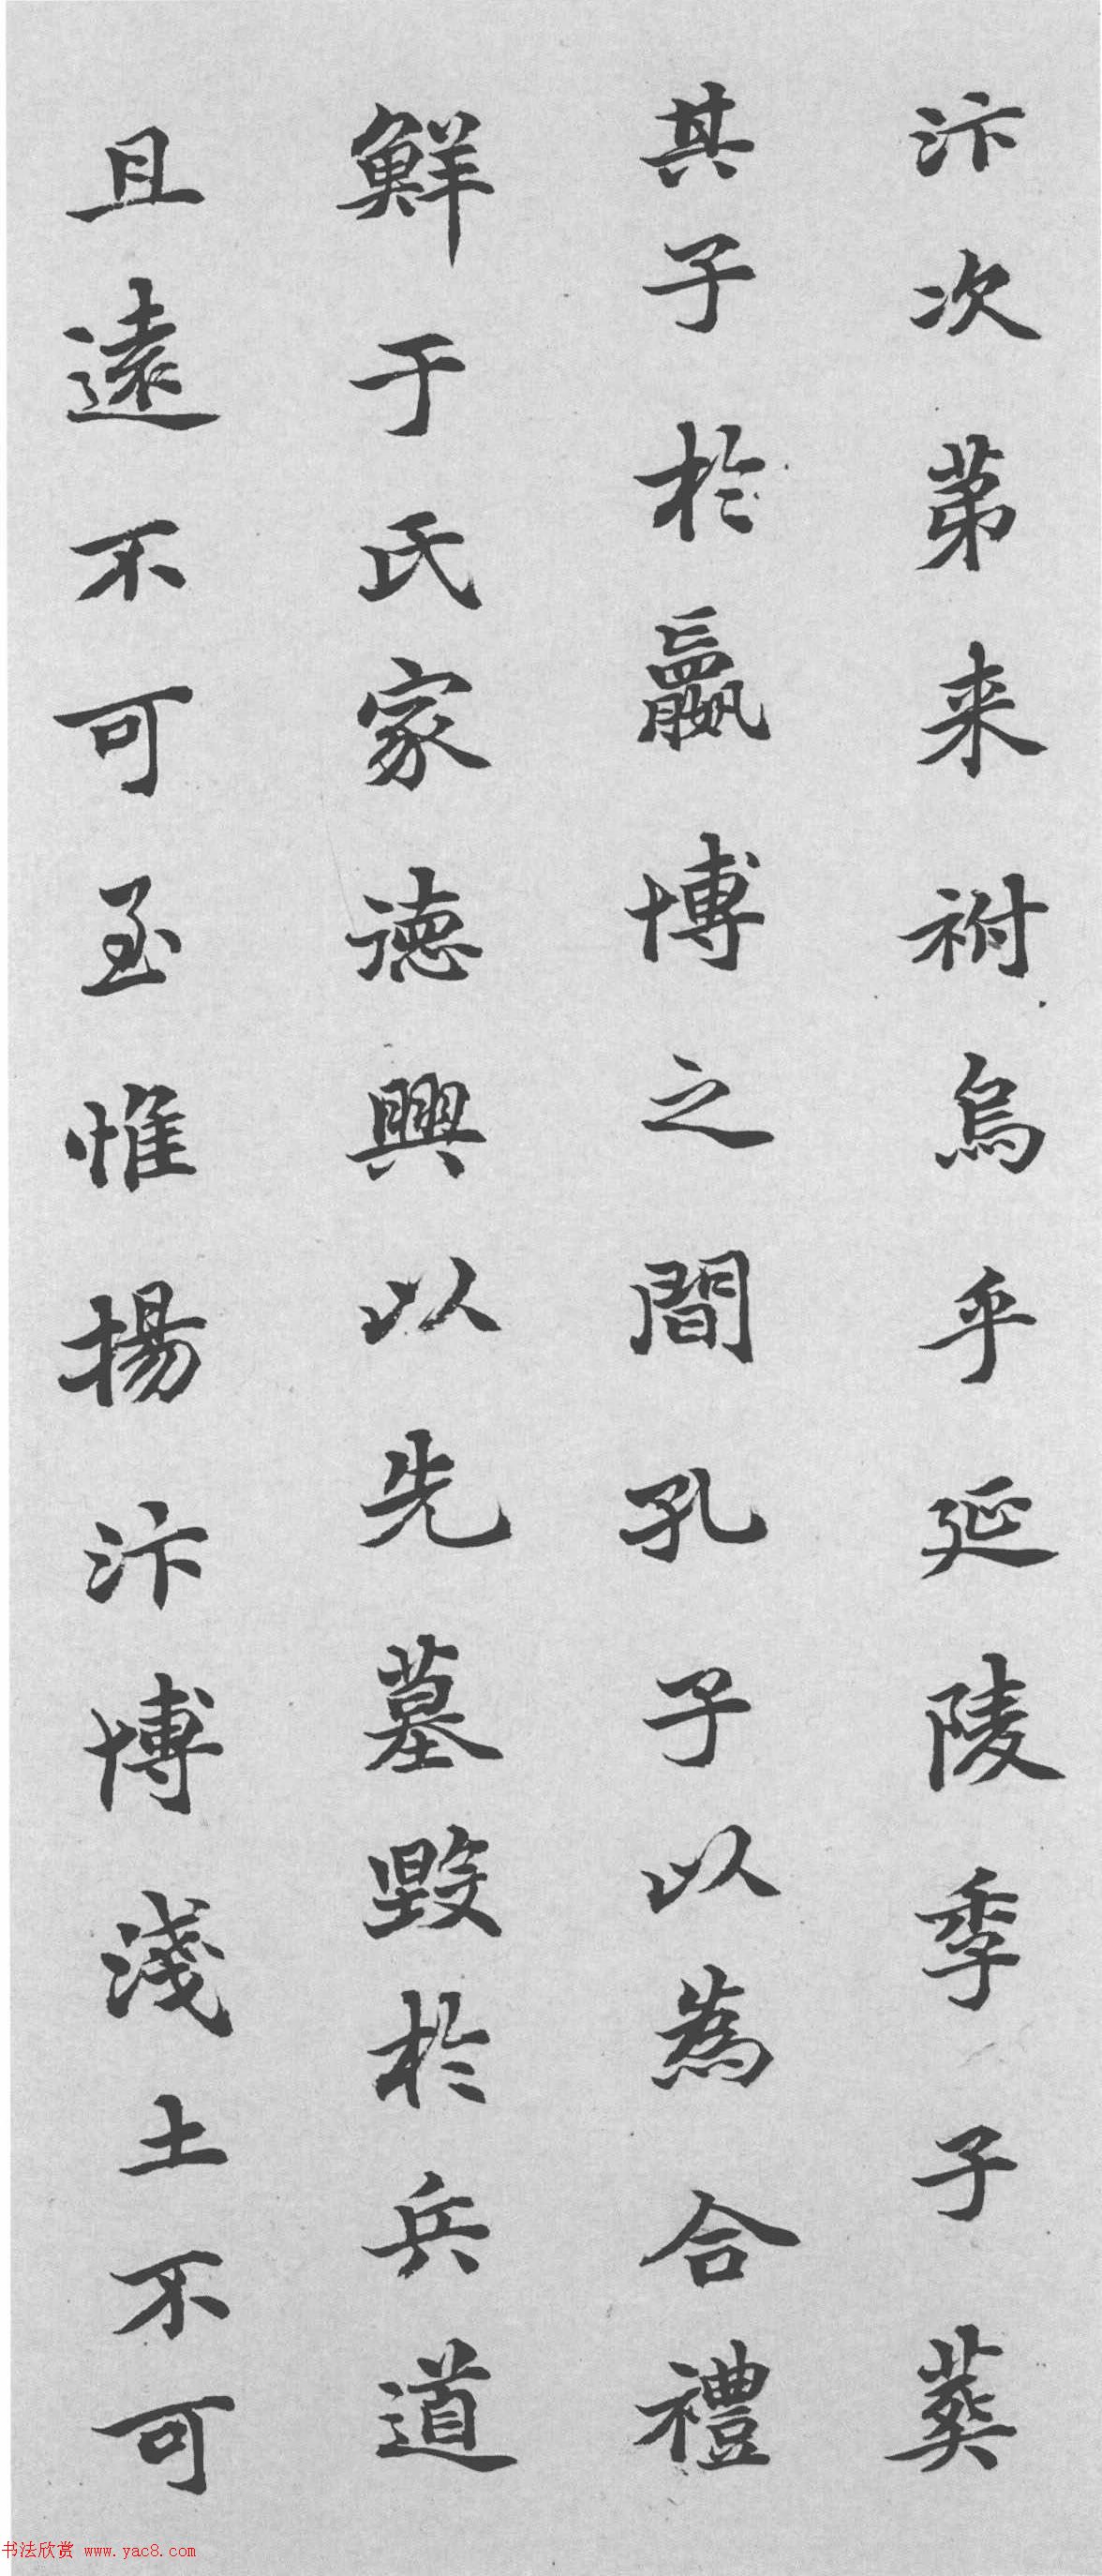 汴次苐来祔烏乎延陵季子葬
其子於嬴博之間孔子以為合禮
鮮于氏家德興以先墓毀於兵道
且遠不可至惟揚汴博淺土不可
书法欣赏 www.yac8.com